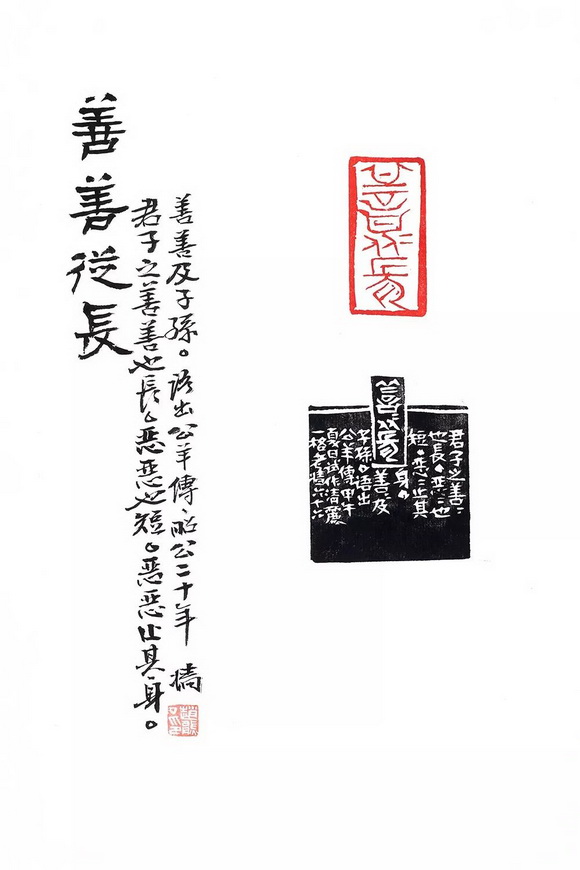 善善從長
君子之善善也長。惡惡也短。惡惡止其身。
善善及子孫。語出公羊傳、昭公二十年 牆
善從長
善從長
君子之善〻
也長。惡〻也
短。惡〻止其
身。
善〻及
子孫。語出
公羊傳甲午
夏日試作清麗
一格老牆六十六